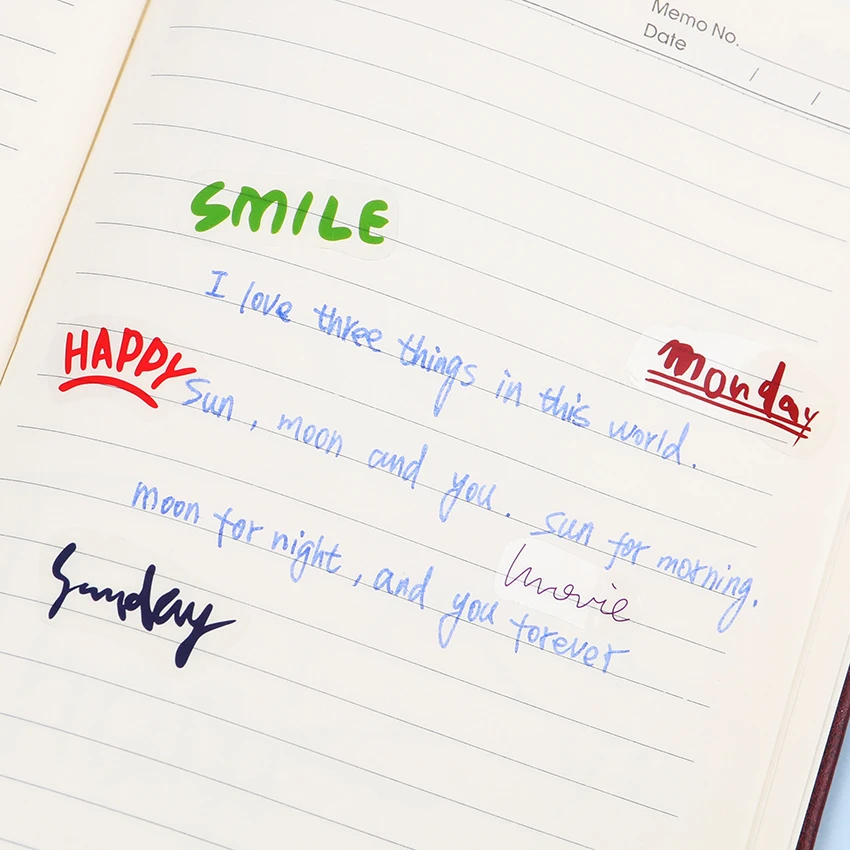 Memo No.
Date / /
SMILE
I love three things in this world.
monday
HAPPY
Sun, moon and you. sun for morning.
moon for night, and you forever
movie
Sunday